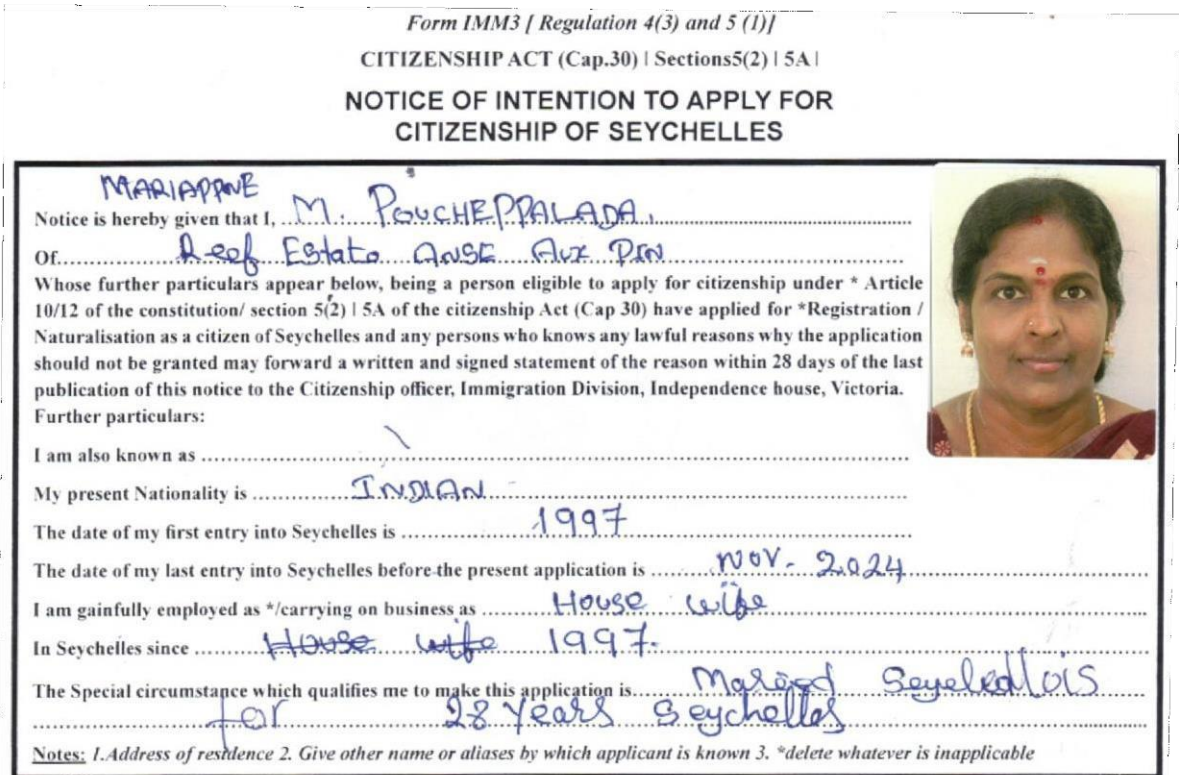 Form IMM3 [ Regulation 4(3) and 5 (1)]
CITIZENSHIP ACT (Cap.30) | Sections5(2) | 5A |
NOTICE OF INTENTION TO APPLY FOR
CITIZENSHIP OF SEYCHELLES
MARIAPPNE
Notice is hereby given that I, M. POUCHEPPALADA.
Of Reef Estate ANSE AUX PIN
Whose further particulars appear below, being a person eligible to apply for citizenship under * Article
10/12 of the constitution/ section 5(2) | 5A of the citizenship Act (Cap 30) have applied for *Registration /
Naturalisation as a citizen of Seychelles and any persons who knows any lawful reasons why the application
should not be granted may forward a written and signed statement of the reason within 28 days of the last
publication of this notice to the Citizenship officer, Immigration Division, Independence house, Victoria.
Further particulars:
I am also known as
My present Nationality is INDIAN
The date of my first entry into Seychelles is 1997
The date of my last entry into Seychelles before the present application is NOV. 2024
I am gainfully employed as */carrying on business as House wife
In Seychelles since House wife 1997.
The Special circumstance which qualifies me to make this application is
for 28 Years Seychelles
Notes: 1.Address of residence 2. Give other name or aliases by which applicant is known 3. *delete whatever is inapplicable